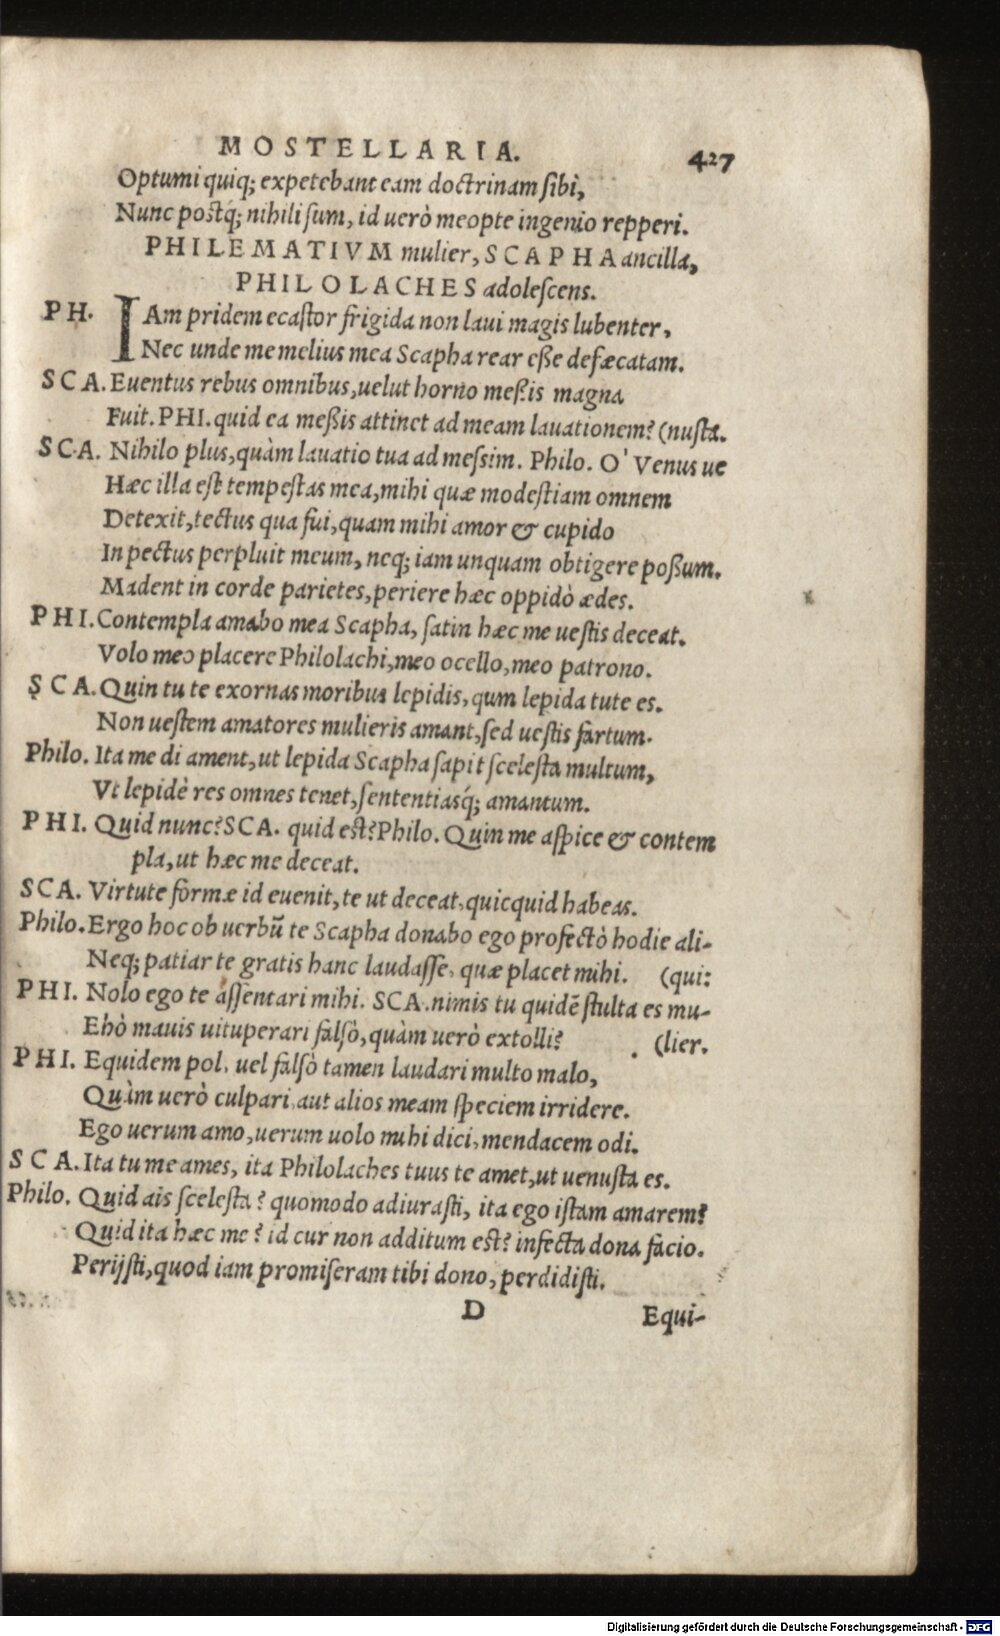 MOSTELLARIA. 427
Optumi quiq; expetebant eam doctrinam sibì,
Nunc postq; nihili sum, id uerò meopte ingenio repperi.
PHILEMATIVM mulier, SCAPHA ancilla,
PHILOLACHES adolescens.
PH. IAm pridem ecastor frigida non laui magis lubenter,
Nec unde me melius mea Scapha rear eße defæcatam.
SCA. Euentus rebus omnibus, uelut horno meßis magna
Fuit. PHI. quid ea meßis attinet ad meam lauationem? (nusta.
SCA. Nihilo plus, quàm lauatio tua ad messim. Philo. O' Venus ue
Hæc illa est tempestas mea, mihi quæ modestiam omnem
Detexit, tectus qua fui, quam mihi amor & cupido
In pectus perpluit meum, neq; iam unquam obtigere poßum.
Madent in corde parietes, periere hæc oppidò ædes.
PHI. Contempla amabo mea Scapha, satin hæc me uestis deceat.
Volo meo placere Philolachi, meo ocello, meo patrono.
SCA. Quin tu te exornas moribus lepidis, qum lepida tute es.
Non uestem amatores mulieris amant, sed uestis fartum.
Philo. Ita me di ament, ut lepida Scapha sapit scelesta multum,
Vt lepidè res omnes tenet, sententiasq́; amantum.
PHI. Quid nunc? SCA. quid est? Philo. Quin me aspice & contem
pla, ut hæc me deceat.
SCA. Virtute formæ id euenit, te ut deceat, quicquid habeas.
Philo. Ergo hoc ob uerbū te Scapha donabo ego profectò hodie ali-
Neq; patiar te gratis hanc laudasse, quæ placet mihi. (qui:
PHI. Nolo ego te assentari mihi. SCA. nimis tu quidē stulta es mu-
Ehò mauis uituperari falsò, quàm uerò extolli? (lier.
PHI. Equidem pol, uel falsò tamen laudari multo malo,
Quàm uerò culpari, aut alios meam speciem irridere.
Ego uerum amo, uerum uolo mihi dici, mendacem odi.
SCA. Ita tu me ames, ita Philolaches tuus te amet, ut uenusta es.
Philo. Quid ais scelesta? quomodo adiurasti, ita ego istam amarem?
Quid ita hæc me? id cur non additum est? infecta dona facio.
Perijsti, quod iam promiseram tibi dono, perdidisti.
D Equi-
Digitalisierung gefördert durch die Deutsche Forschungsgemeinschaft - DFG